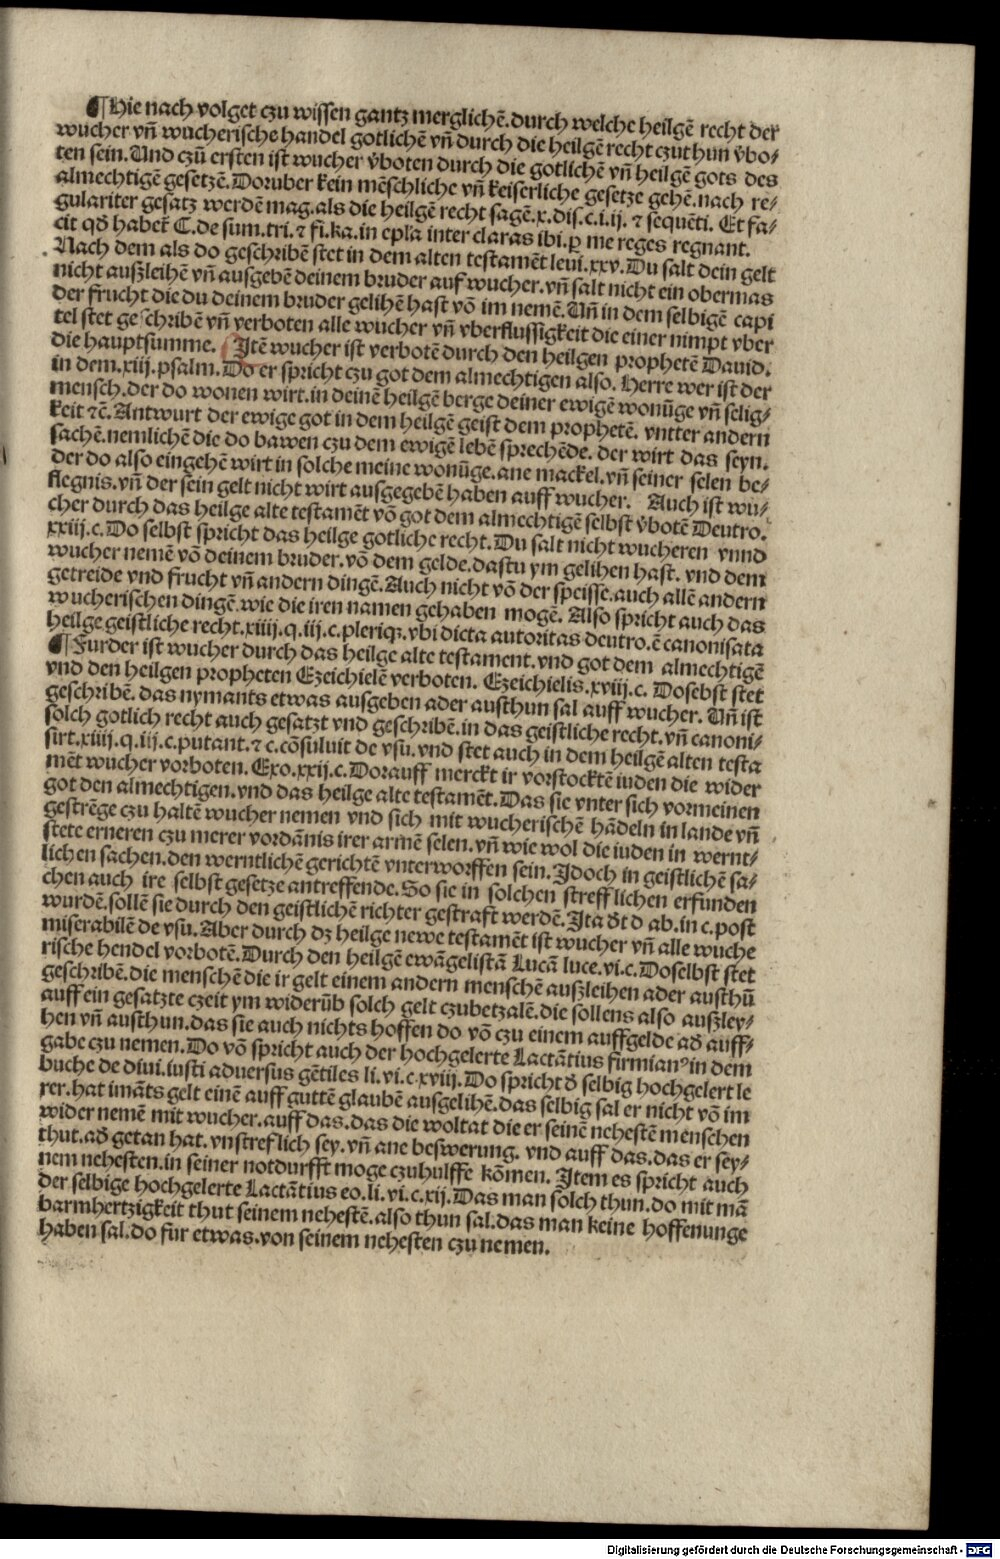 ¶Hie nach volget czu wissen gantz merglichē.durch welche heilgē recht der
wucher vñ wucherische handel gotlichē vñ durch die heilgē recht czuthun v̄bo⸗
ten sein.Und czū ersten ist wucher v̄boten durch die gotlichē vñ heilgē gots des
almechtigē gesetzē.Doruber kein mēschliche vñ keiserliche gesetze gehē.nach re⸗
gulariter gesatz werdē mag.als die heilgē recht sagē.x.dis.c.i.ij. ⁊ sequēti. Et fa⸗
cit qð habet̄ C.de sum.tri.⁊ fi.ka.in epl̄a inter claras ibi.ꝑ me reges regnant.
Nach dem als do geschribē stet in dem alten testamēt leui.xxv.Du salt dein gelt
nicht außleihē vñ ausgebē deinem bruder auf wucher.vñ salt nicht ein obermas
der frucht die du deinem bruder gelihē hast vō im nemē.Uñ in dem selbigē capi
tel stet geschribē vñ verboten alle wucher vñ vberflussigkeit die einer nimpt vber
die hauptsumme. Itē wucher ist verbotē durch den heilgen prophetē Dauid.
in dem.xiij.psalm.Do er spricht czu got dem almechtigen also. Herre wer ist der
mensch.der do wonen wirt.in deinē heilgē berge deiner ewigē wonūge vñ selig⸗
keit ⁊ē.Antwurt der ewige got in dem heilgē geist dem prophetē. vntter andern
sachē.nemlichē die do bawen czu dem ewigē lebē sprechēde. der wirt das seyn.
der do also eingehē wirt in solche meine wonūge.ane mackel.vñ seiner selen be⸗
flegnis.vñ der sein gelt nicht wirt ausgegebē haben auff wucher. Auch ist wu⸗
cher durch das heilge alte testamēt vō got dem almechtigē selbst v̄botē Deutro.
xxiij.c.Do selbst spricht das heilge gotliche recht.Du salt nicht wucheren vnnd
wucher nemē vō deinem bruder.vō dem gelde.dastu ym gelihen hast. vnd dem
getreide vnd frucht vñ andern dingē.Auch nicht vō der speisse.auch allē andern
wucherischen dingē.wie die iren namen gehaben mogē. Also spricht auch das
heilge geistliche recht.xiiij.q.iij.c.pleriqꝫ.vbi dicta autoritas deutro.ē canonisata
¶Furder ist wucher durch das heilge alte testament.vnd got dem almechtigē
vnd den heilgen propheten Ezeichielē verboten. Ezeichielis.xviij.c. Dosebst stet
geschribē. das nymants etwas ausgeben ader austhun sal auff wucher. Uñ ist
solch gotlich recht auch gesatzt vnd geschribē.in das geistliche recht.vñ canoni⸗
sirt.xiiij.q.iij.c.putant.⁊ c.cōsuluit de vsu.vnd stet auch in dem heilgē alten testa
mēt wucher vorboten. Exo.xxij.c.Dorauff merckt ir vorstocktē iuden die wider
got den almechtigen.vnd das heilge alte testamēt.Das sie vnter sich vormeinen
gestrēge czu haltē wucher nemen vnd sich mit wucherischē hādeln in lande vñ
stete erneren czu merer vordānis irer armē selen.vñ wie wol die iuden in wernt⸗
lichen sachen.den werntlichē gerichtē vnterworffen sein.Idoch in geistlichē sa⸗
chen auch ire selbst gesetze antreffende.So sie in solchen strefflichen erfunden
wurdē.sollē sie durch den geistlichē richter gestraft werdē.Ita ðt d ab.in c.post
miserabilē de vsu.Aber durch dz heilge newe testamēt ist wucher vñ alle wuche
rische hendel vorbotē.Durch den heilgē ewāgelistā Lucā luce.vi.c.Doselbst stet
geschribē.die menschē die ir gelt einem andern menschē außleihen ader austhū
auff ein gesatzte czeit ym widerūb solch gelt czubetzalē.die sollens also außley⸗
hen vñ austhun.das sie auch nichts hoffen do vō czu einem auffgelde að auff⸗
gabe czu nemen.Do vō spricht auch der hochgelerte Lactātius firmianꝰ in dem
buche de diui.iusti aduersus gētiles li.vi.c.xviij.Do spricht ð selbig hochgelert le
rer.hat imāts gelt einē auff guttē glaubē ausgelihē.das selbig sal er nicht vō im
wider nemē mit wucher.auff das.das die woltat die er seinē nehestē menschen
thut.að getan hat.vnstreflich sey.vñ ane beswerung. vnd auff das.das er sey⸗
nem nehesten.in seiner notdurfft moge czuhulffe kōmen. Item es spricht auch
der selbige hochgelerte Lactātius eo.li.vi.c.xij.Das man solch thun.do mit mā
barmhertzigkeit thut seinem nehestē.also thun sal.das man keine hoffenunge
haben sal.do fur etwas.von seinem nehesten czu nemen.
Digitalisierung gefördert durch die Deutsche Forschungsgemeinschaft - DFG